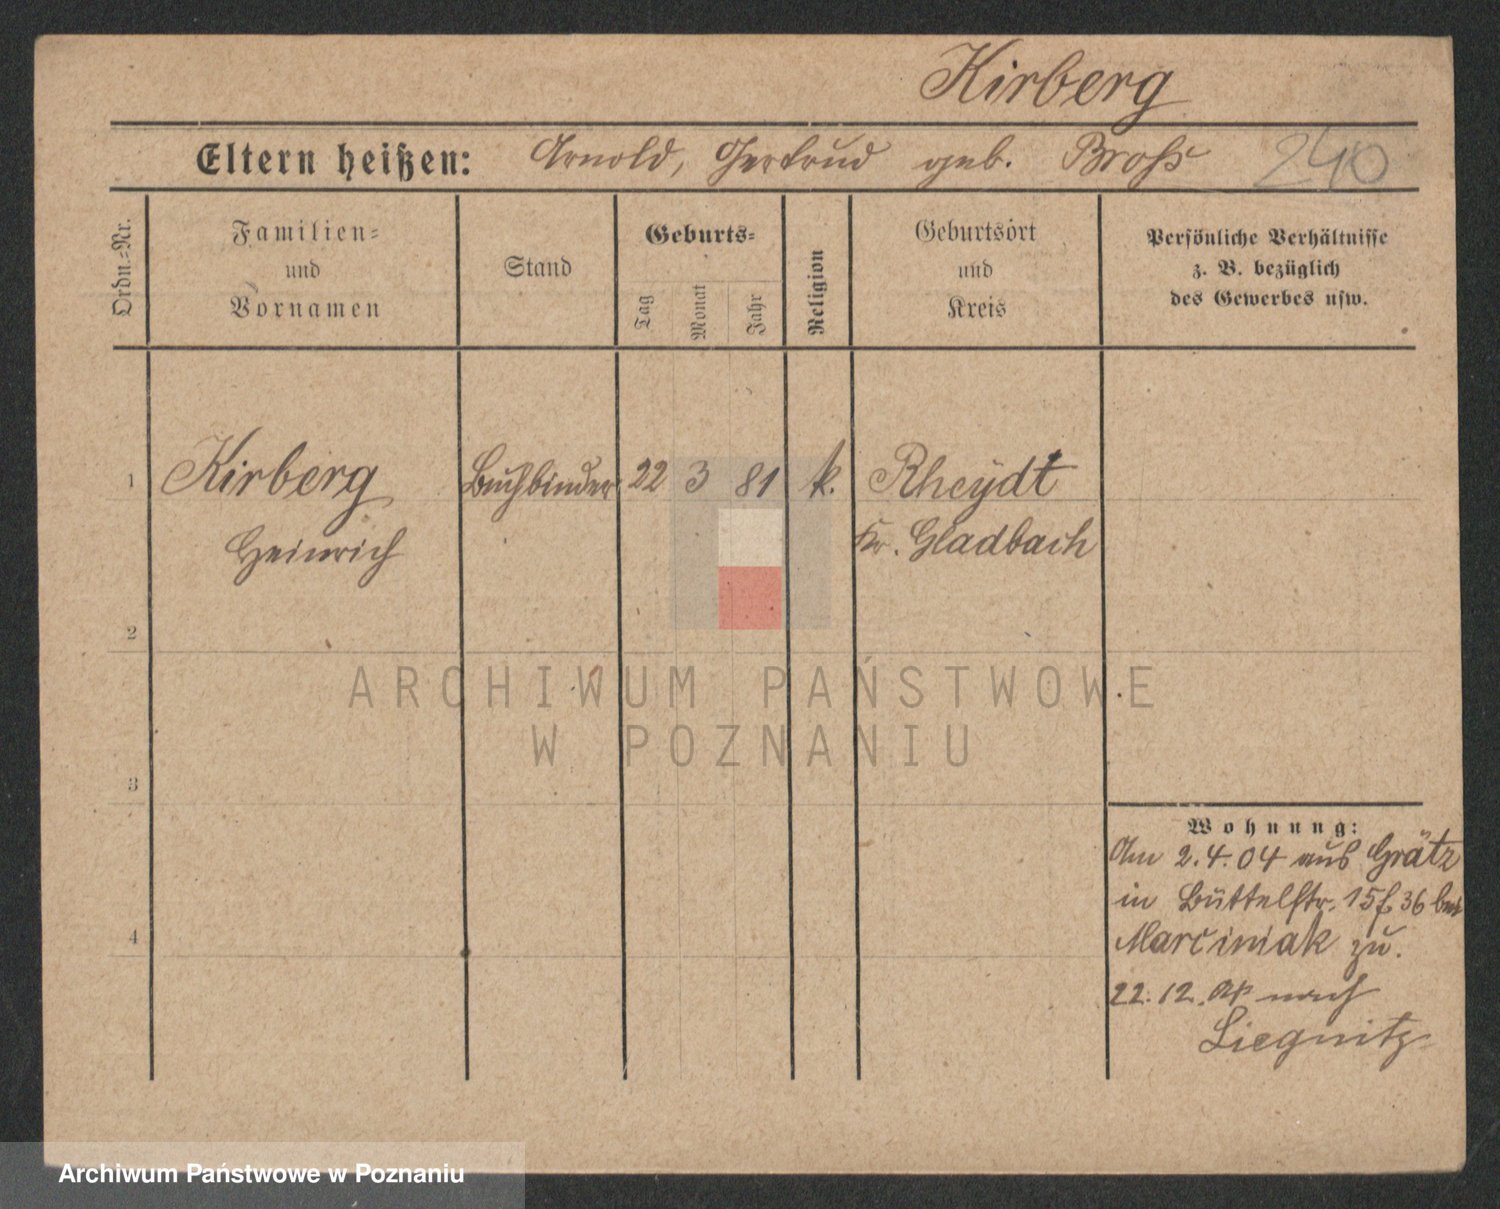 Kirberg
Eltern heißen: Arnold, Gertrud geb. Broß 240
Ordn.-Nr.
Familien-
und
Vornamen
Stand
Geburts-
Tag
Monat
Jahr
Religion
Geburtsort
und
Kreis
Persönliche Verhältnisse
z. B. bezüglich
des Gewerbes usw.
1 Kirberg Buchbinder 22 3 81 k. Rheydt
Heinrich Kr. Gladbach
2
ARCHIWUM PAŃSTWOWE
W POZNANIU
3
Wohnung:
Am 2.4.04 aus Grätz
in Büttelstr. 15 36 bei
4
Marciniak zu.
22.12. nach
Liegnitz
Archiwum Państwowe w Poznaniu